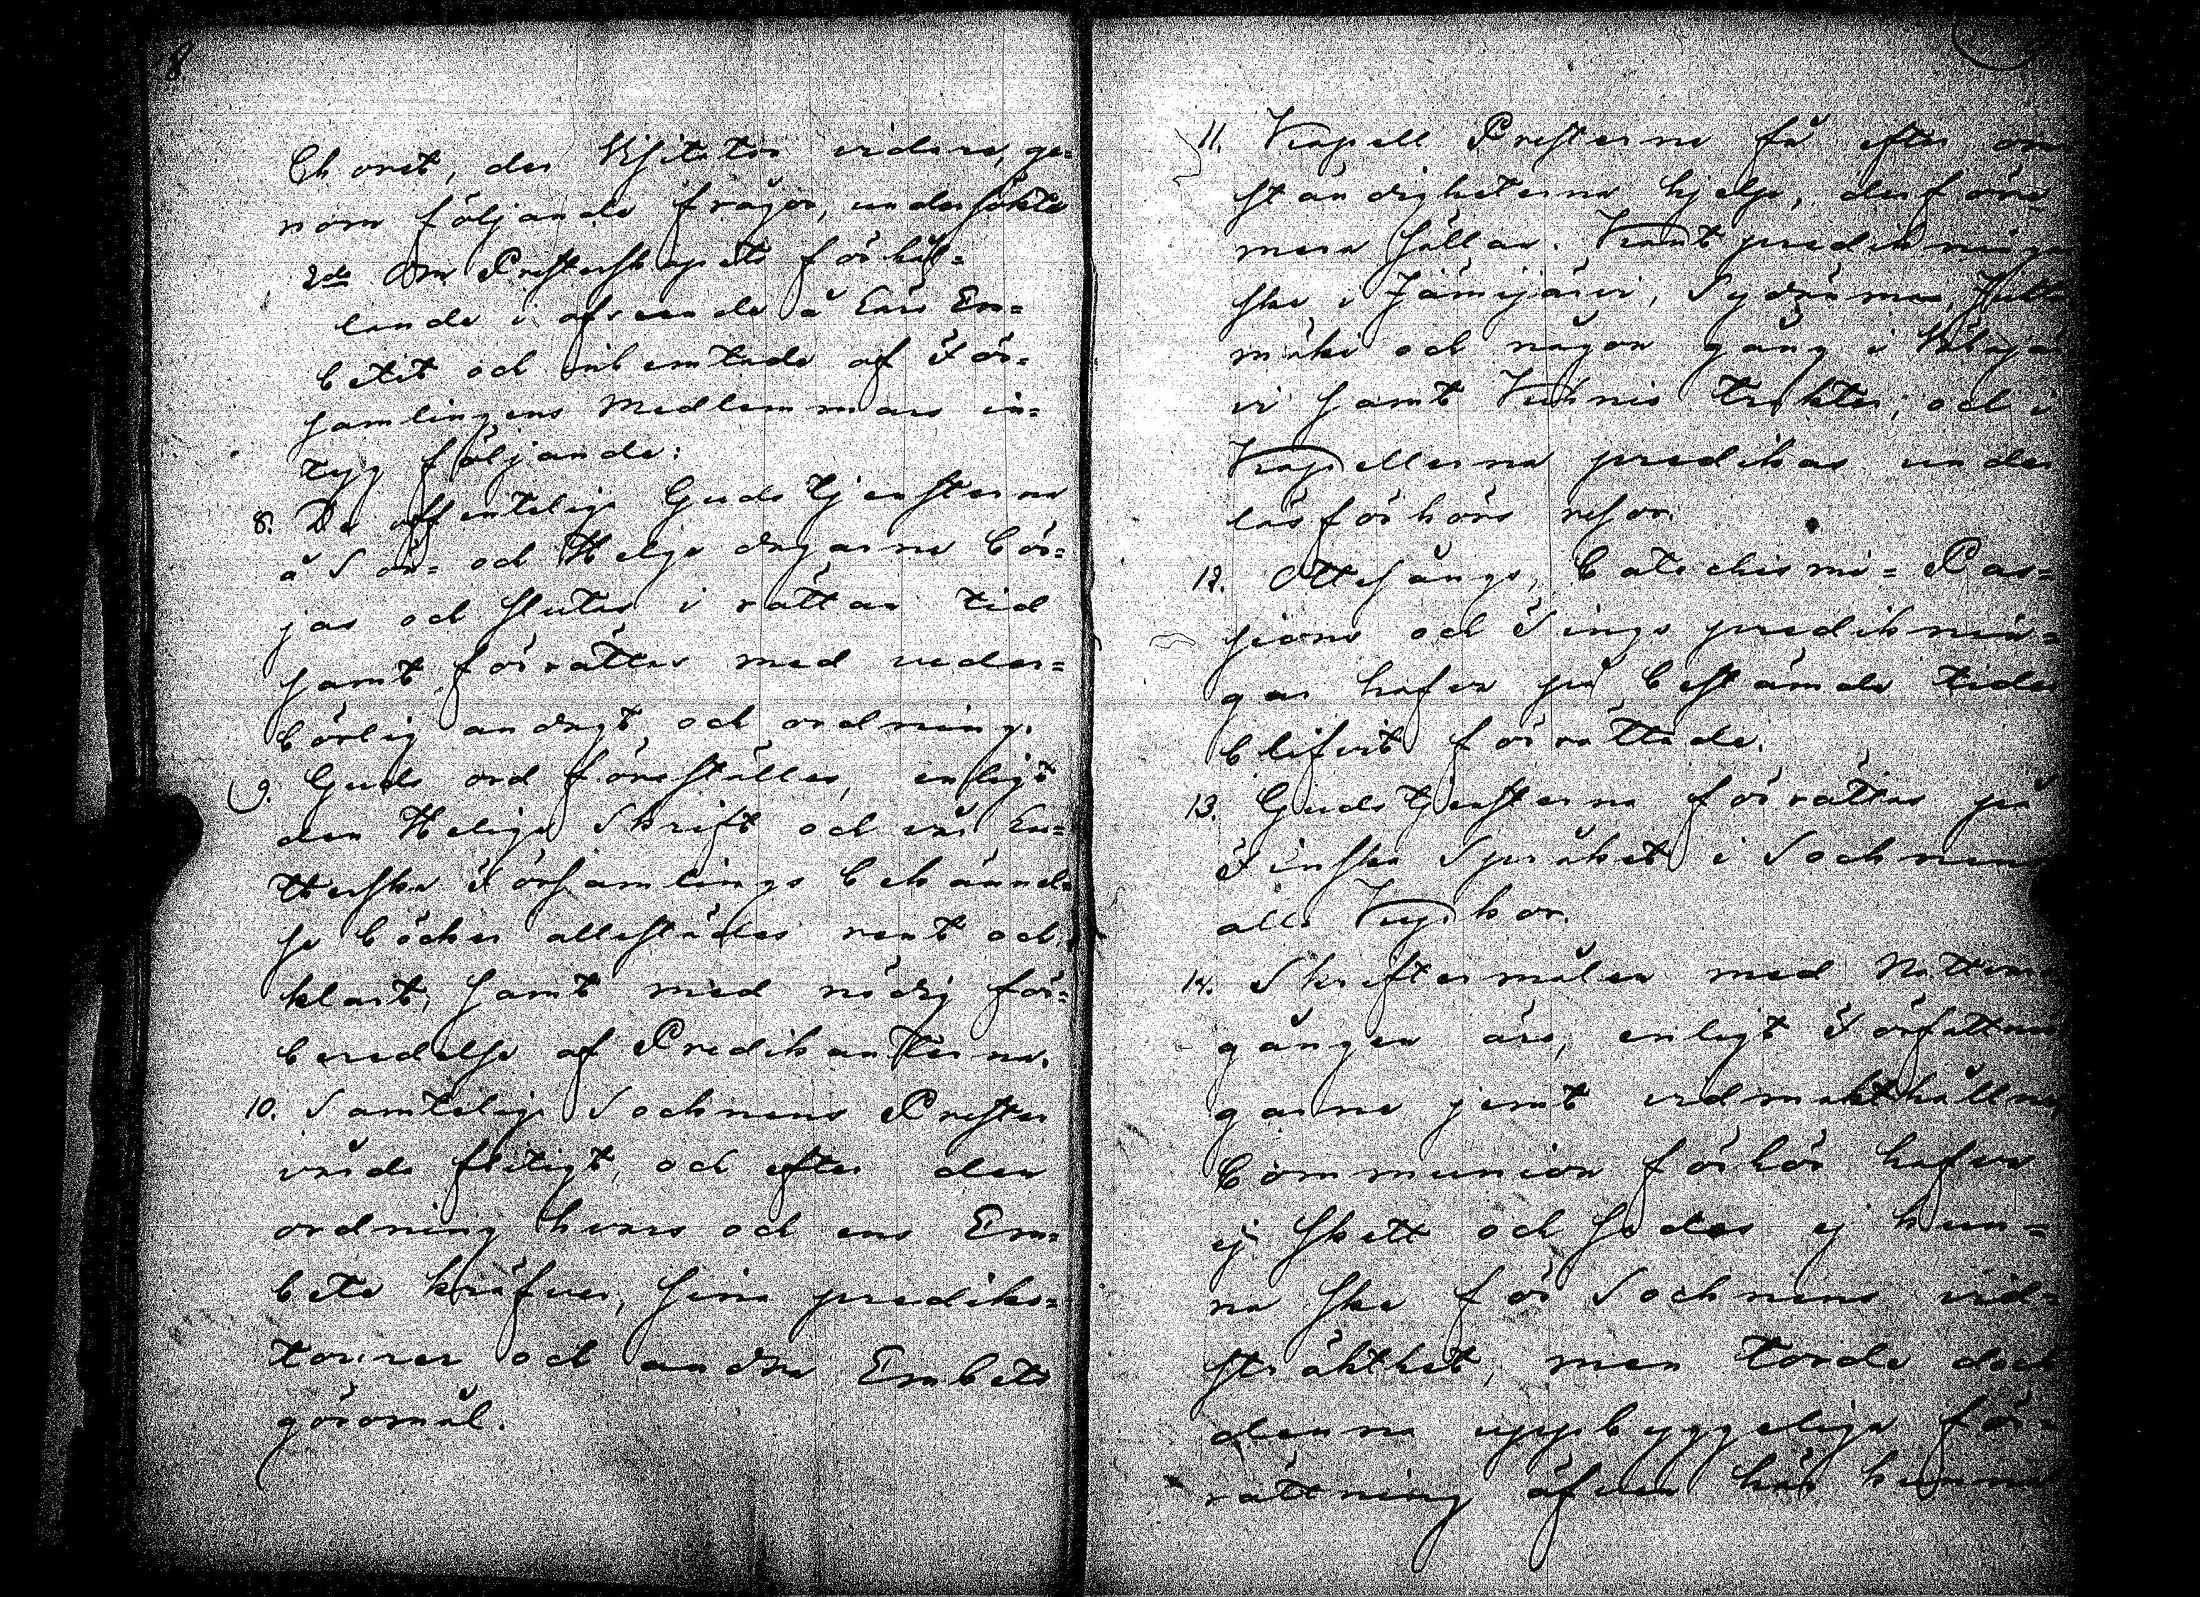 8.
Choret, der Visitator vidare, ge=
nom följande frågor, undersökte
2do Om Presterskapets förhål=
lande i afseende å Dess Em=
betet och inhemtade af För=
samlingens Medlemmars in=
tyg följande:
8. De offentelige Gudstjensterna
å Sön= och Helge dagarne bör=
jas och slutas i rättan tid
samt förrättas med veder=
börlig andagt, och ordning.
9. Guds ord föreställes, enligt
den Helige Skrift och vår Lu=
therska Församlings bekännel
se böcker allestädes rent och
klart, samt med nödig för=
beredelse af Predikanterna.
10. Samtelige Sochnens Prester
vårda flitigt, och efter den
ordning hvars och ens Em=
bete kräfver, sina prediko=
turer och andra Embets
göromål.
11. Kapell Presterne få efter om
ständigheterna hjelp, derföre
mera sällan. Kant predikningar
ske i Jämijärvi, Sydänmaa,
mäki och någon gång i
vi samt Kuhnis trakter; och i
Kapellerna predikas under
läsförhörs resor.
12. Ottesångs, Catechismi= Pas=
sions och Tings predikнin=
gar hafva på bestämda tider
blifvit förrättade.
13. Gudstjensterna förrättas på
Finska Språket i Sochnens
alla Kyrkor.
14. Skriftermålen med Nattvard
gången äro, enligt Författnin
garne jemt vidmakthållne
Communion förhör hafva
ej skett och sades ej kun=
na ske för Sochnens vid=
sträkthet, men torde dock
denna uppbyggelige för=
rättning äfven här kunna